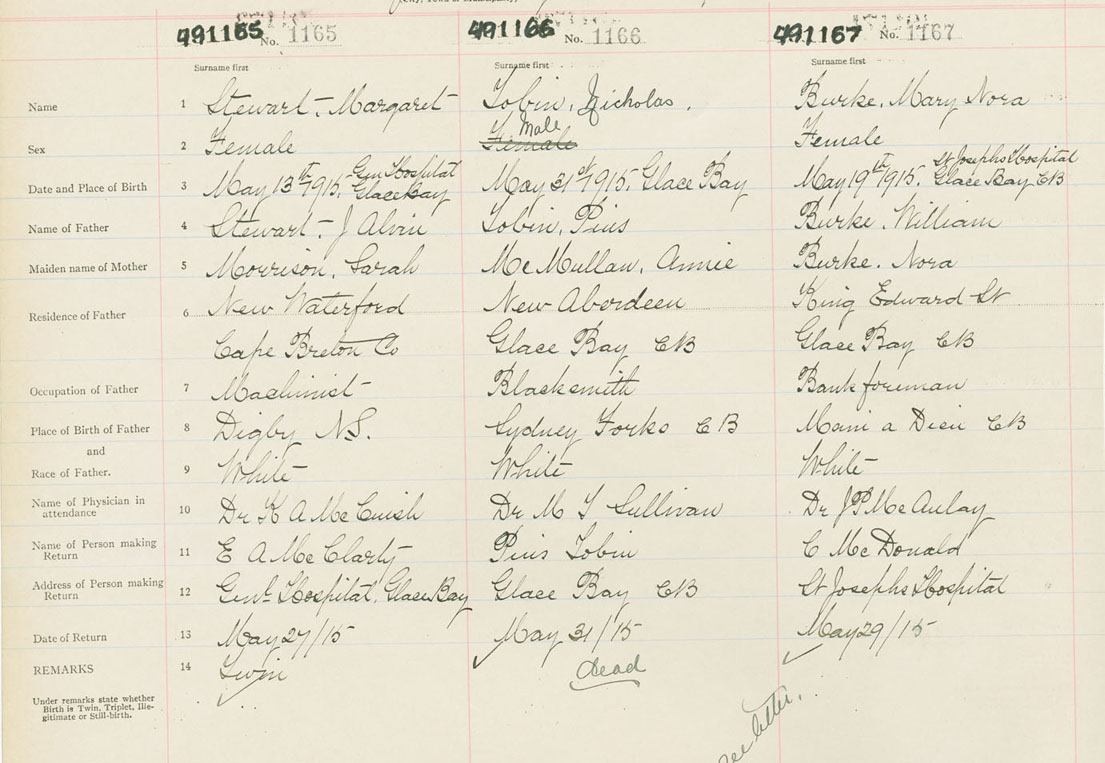 (City, Town or Municipality)
491165 No. 1165 491166 No. 1166 491167 No. 1167
Surname first Surname first Surname first
Name 1 Stewart, Margaret Tobin, Nicholas. Burke, Mary Nora
Male
Sex 2 Female Female Female
Gen Hospital St Josephs Hospital
Date and Place of Birth 3 May 13th 1915, Glace Bay May 31st 1915, Glace Bay May 19th 1915, Glace Bay CB
Name of Father 4 Stewart, J Alvin Tobin, Pius Burke, William
Maiden name of Mother 5 Morrison, Sarah McMullan, Annie Burke, Nora
Residence of Father 6 New Waterford New Aberdeen King Edward St
Cape Breton Co Glace Bay CB Glace Bay CB
Occupation of Father 7 Machinist Blacksmith Bank foreman
Place of Birth of Father 8 Digby N.S. Sydney Forks CB Main a Dieu CB
and
Race of Father. 9 White White White
Name of Physician in
attendance 10 Dr K A McCuish Dr M T Sullivan Dr J P McAulay
Name of Person making
Return 11 E A McClarty Pius Tobin C McDonald
Address of Person making
Return 12 Genl Hospital, Glace Bay Glace Bay CB St Josephs Hospital
Date of Return 13 May 27/15 May 31/15 May 29/15
REMARKS 14 Twin dead
Under remarks state whether
Birth is Twin, Triplet, Ille-
gitimate or Still-birth.
see letter.